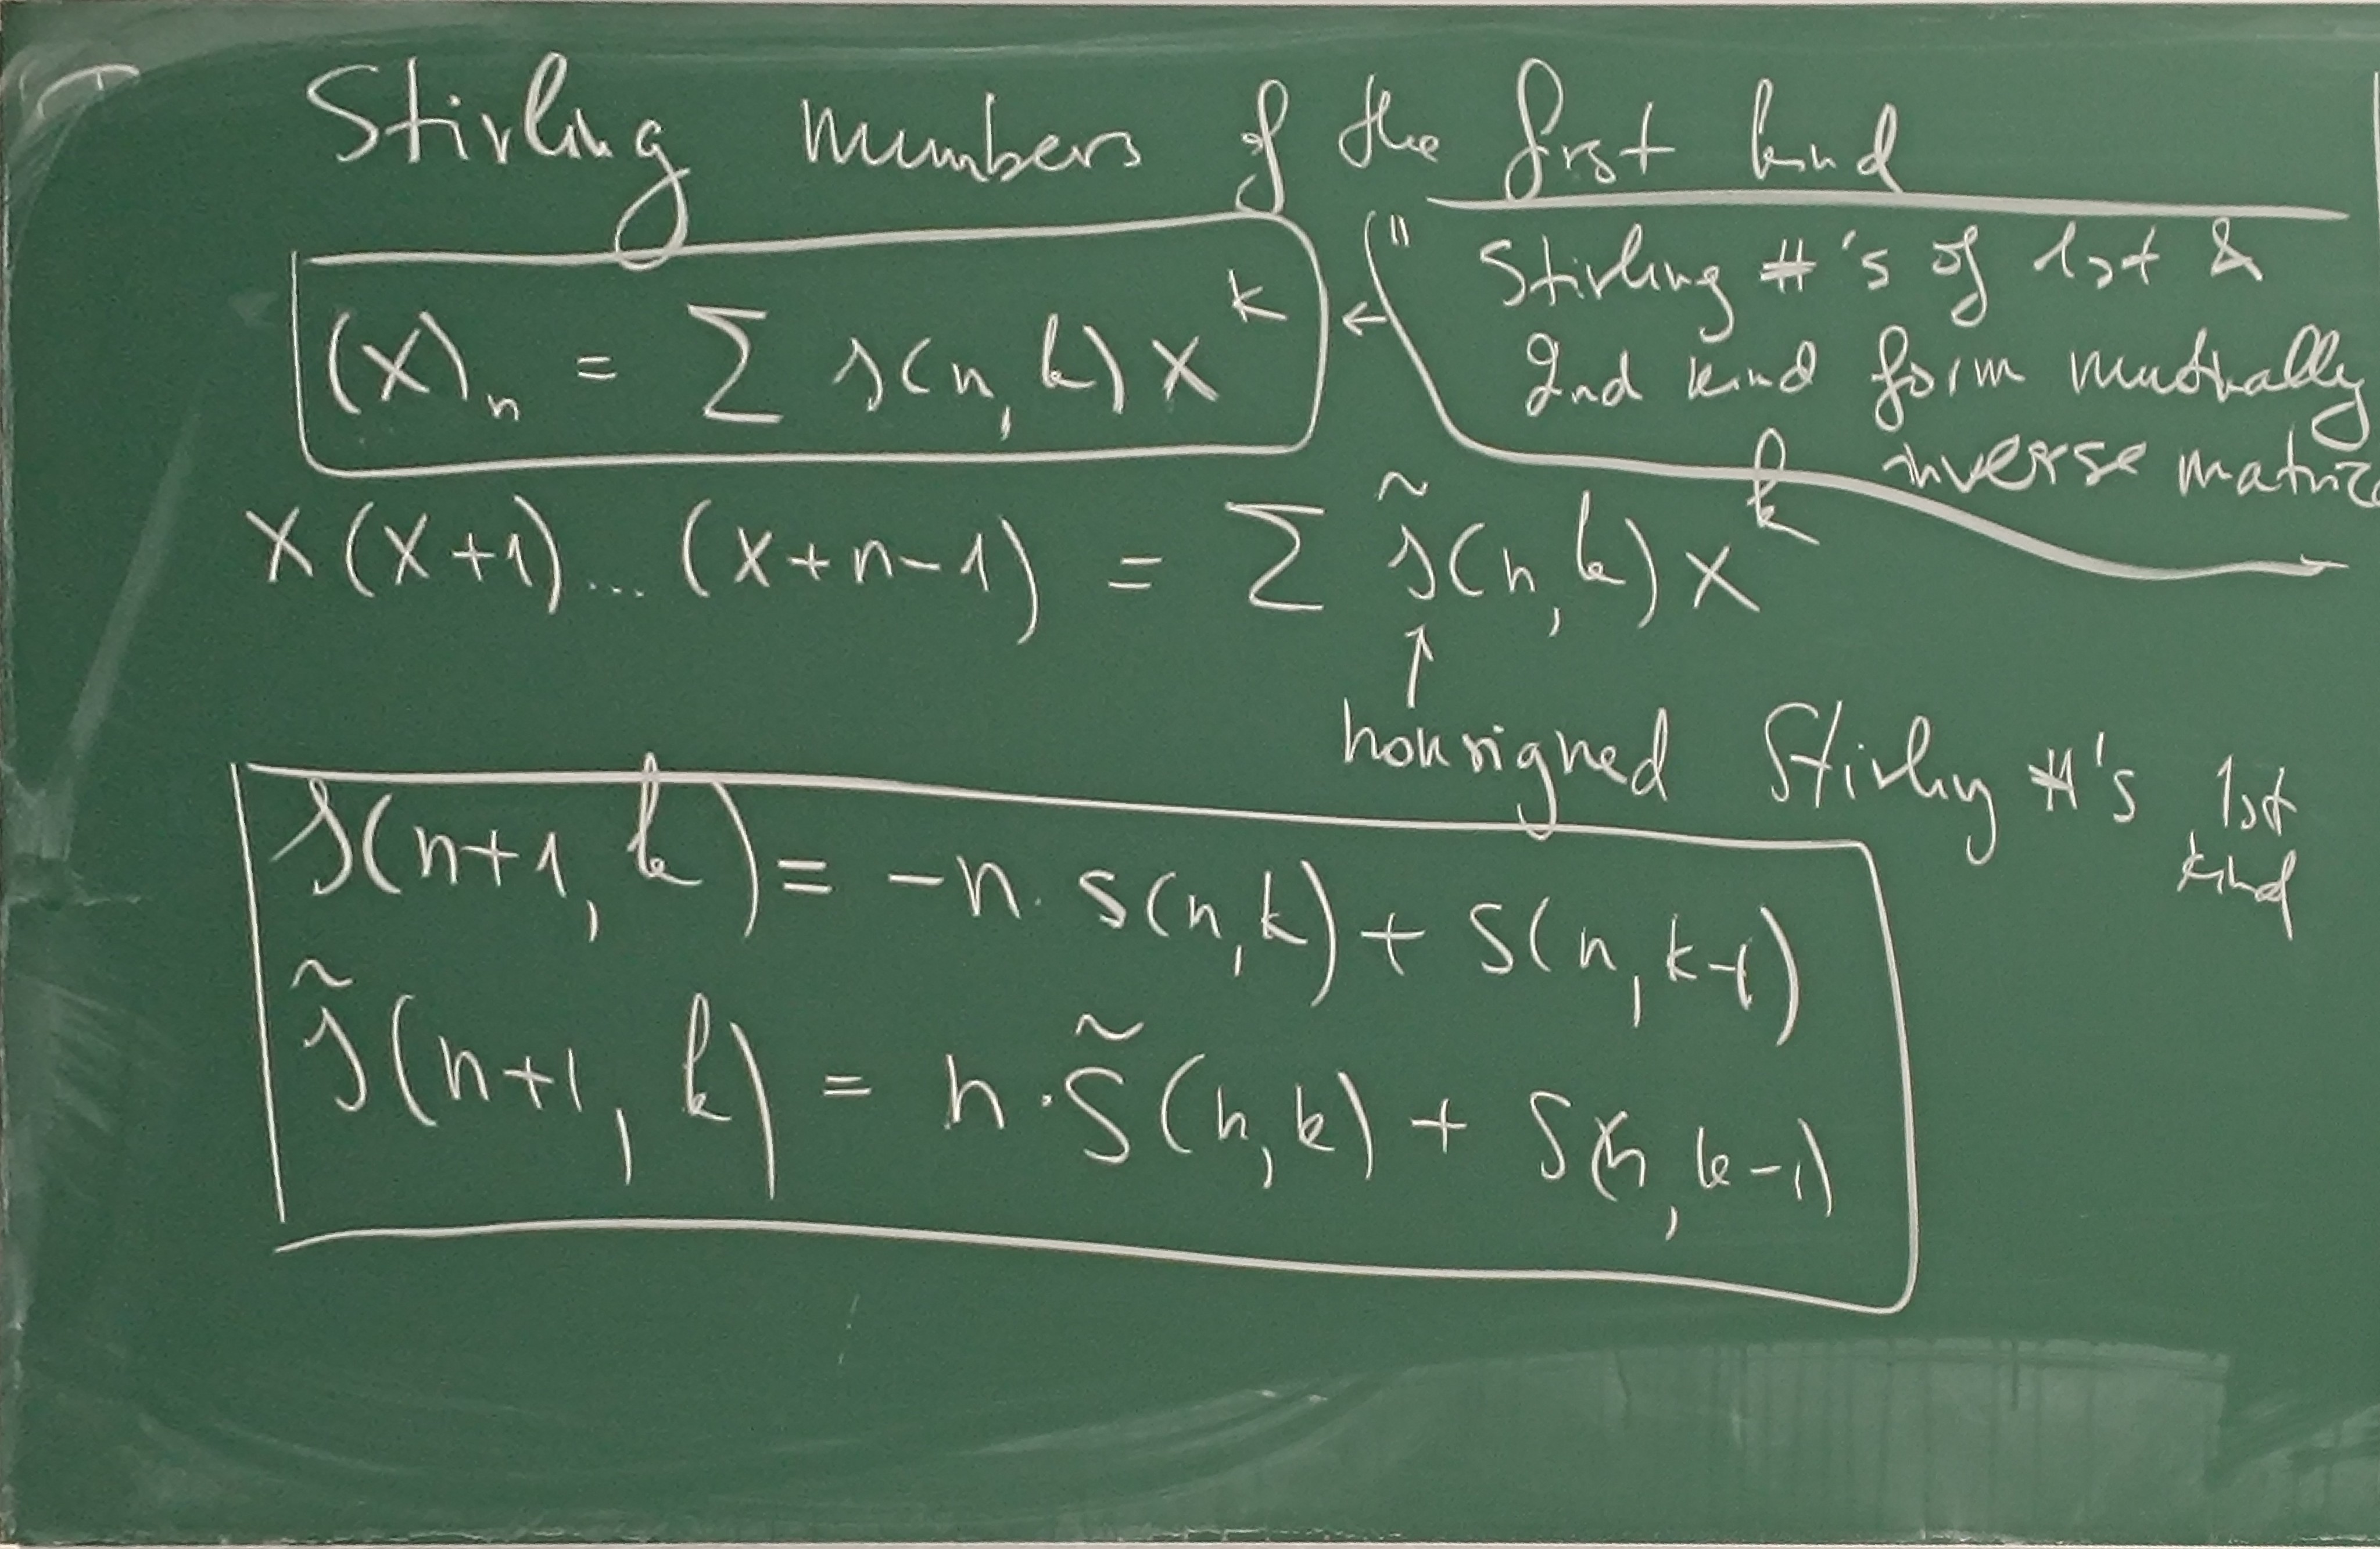 Stirling numbers of the first kind
(x)ₙ = Σ s(n, k) xᵏ
← " Stirling #'s of 1st &
2nd kind form mutually
inverse matrice
x(x+1)...(x+n-1) = Σ s̃(n, k) xᵏ
↑
nonsigned Stirling #'s 1st
kind
s(n+1, k) = -n · s(n, k) + s(n, k-1)
s̃(n+1, k) = n · s̃(n, k) + s(n, k-1)